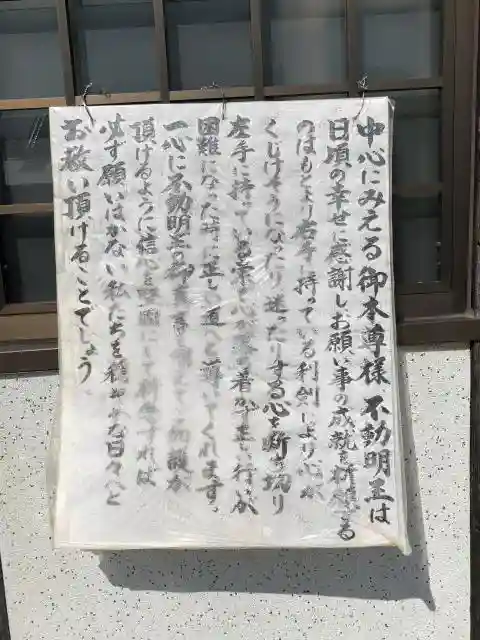 中心にみえる御本尊様 不動明王は
日頃の幸せに感謝しお願い事の成就を祈念する
のはもとより右手に持っている利剣により心が
くじけそうになったり迷ったりする心を断ち切り
左手に持っている索で心が落ち着かず正しい行いが
困難になった時に正しい道へと導いてくれます。
一心に不動明王の御真言を御唱えて御加護が
頂けるように信心を堅固にして祈念すれば
必ず願いはかない私たちを穏やかな日々へと
お救い頂けることでしょう。